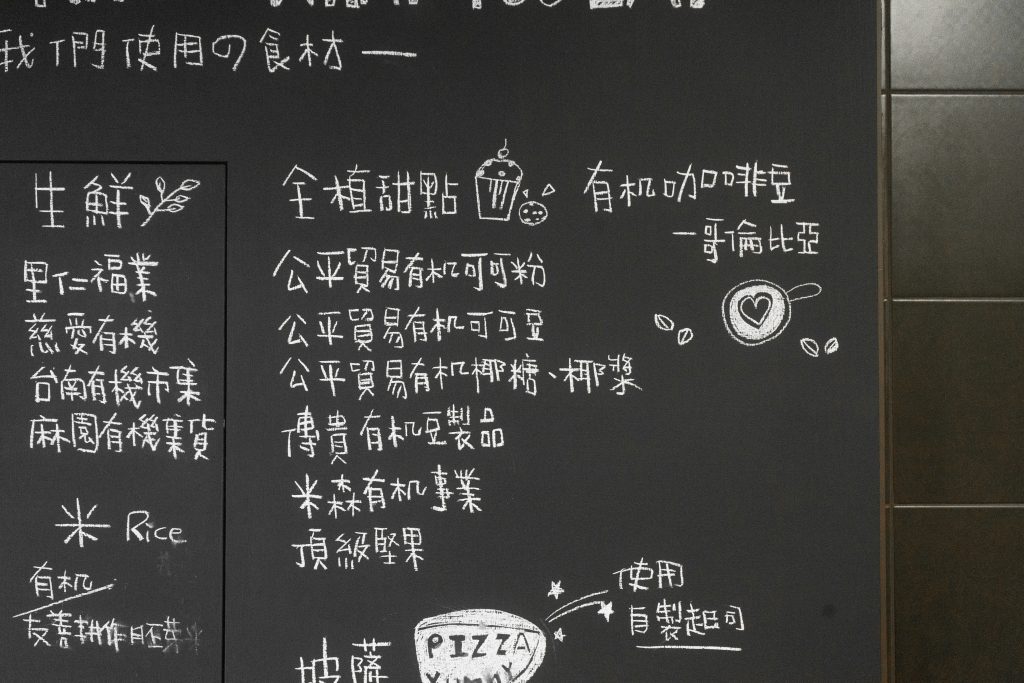 我們使用の食材一
生鮮
里仁福業
慈愛有機
台南有機市集
麻園有機集貨
米 Rice
有机
友善耕作胚芽米
全植甜點
公平貿易有机可可粉
公平貿易有机可可豆
公平貿易有机椰糖、椰漿
傳貴有机豆製品
米森有机事業
頂級堅果
有机咖啡豆
一哥倫比亞
披薩
PIZZA
Yummy
使用
自製起司